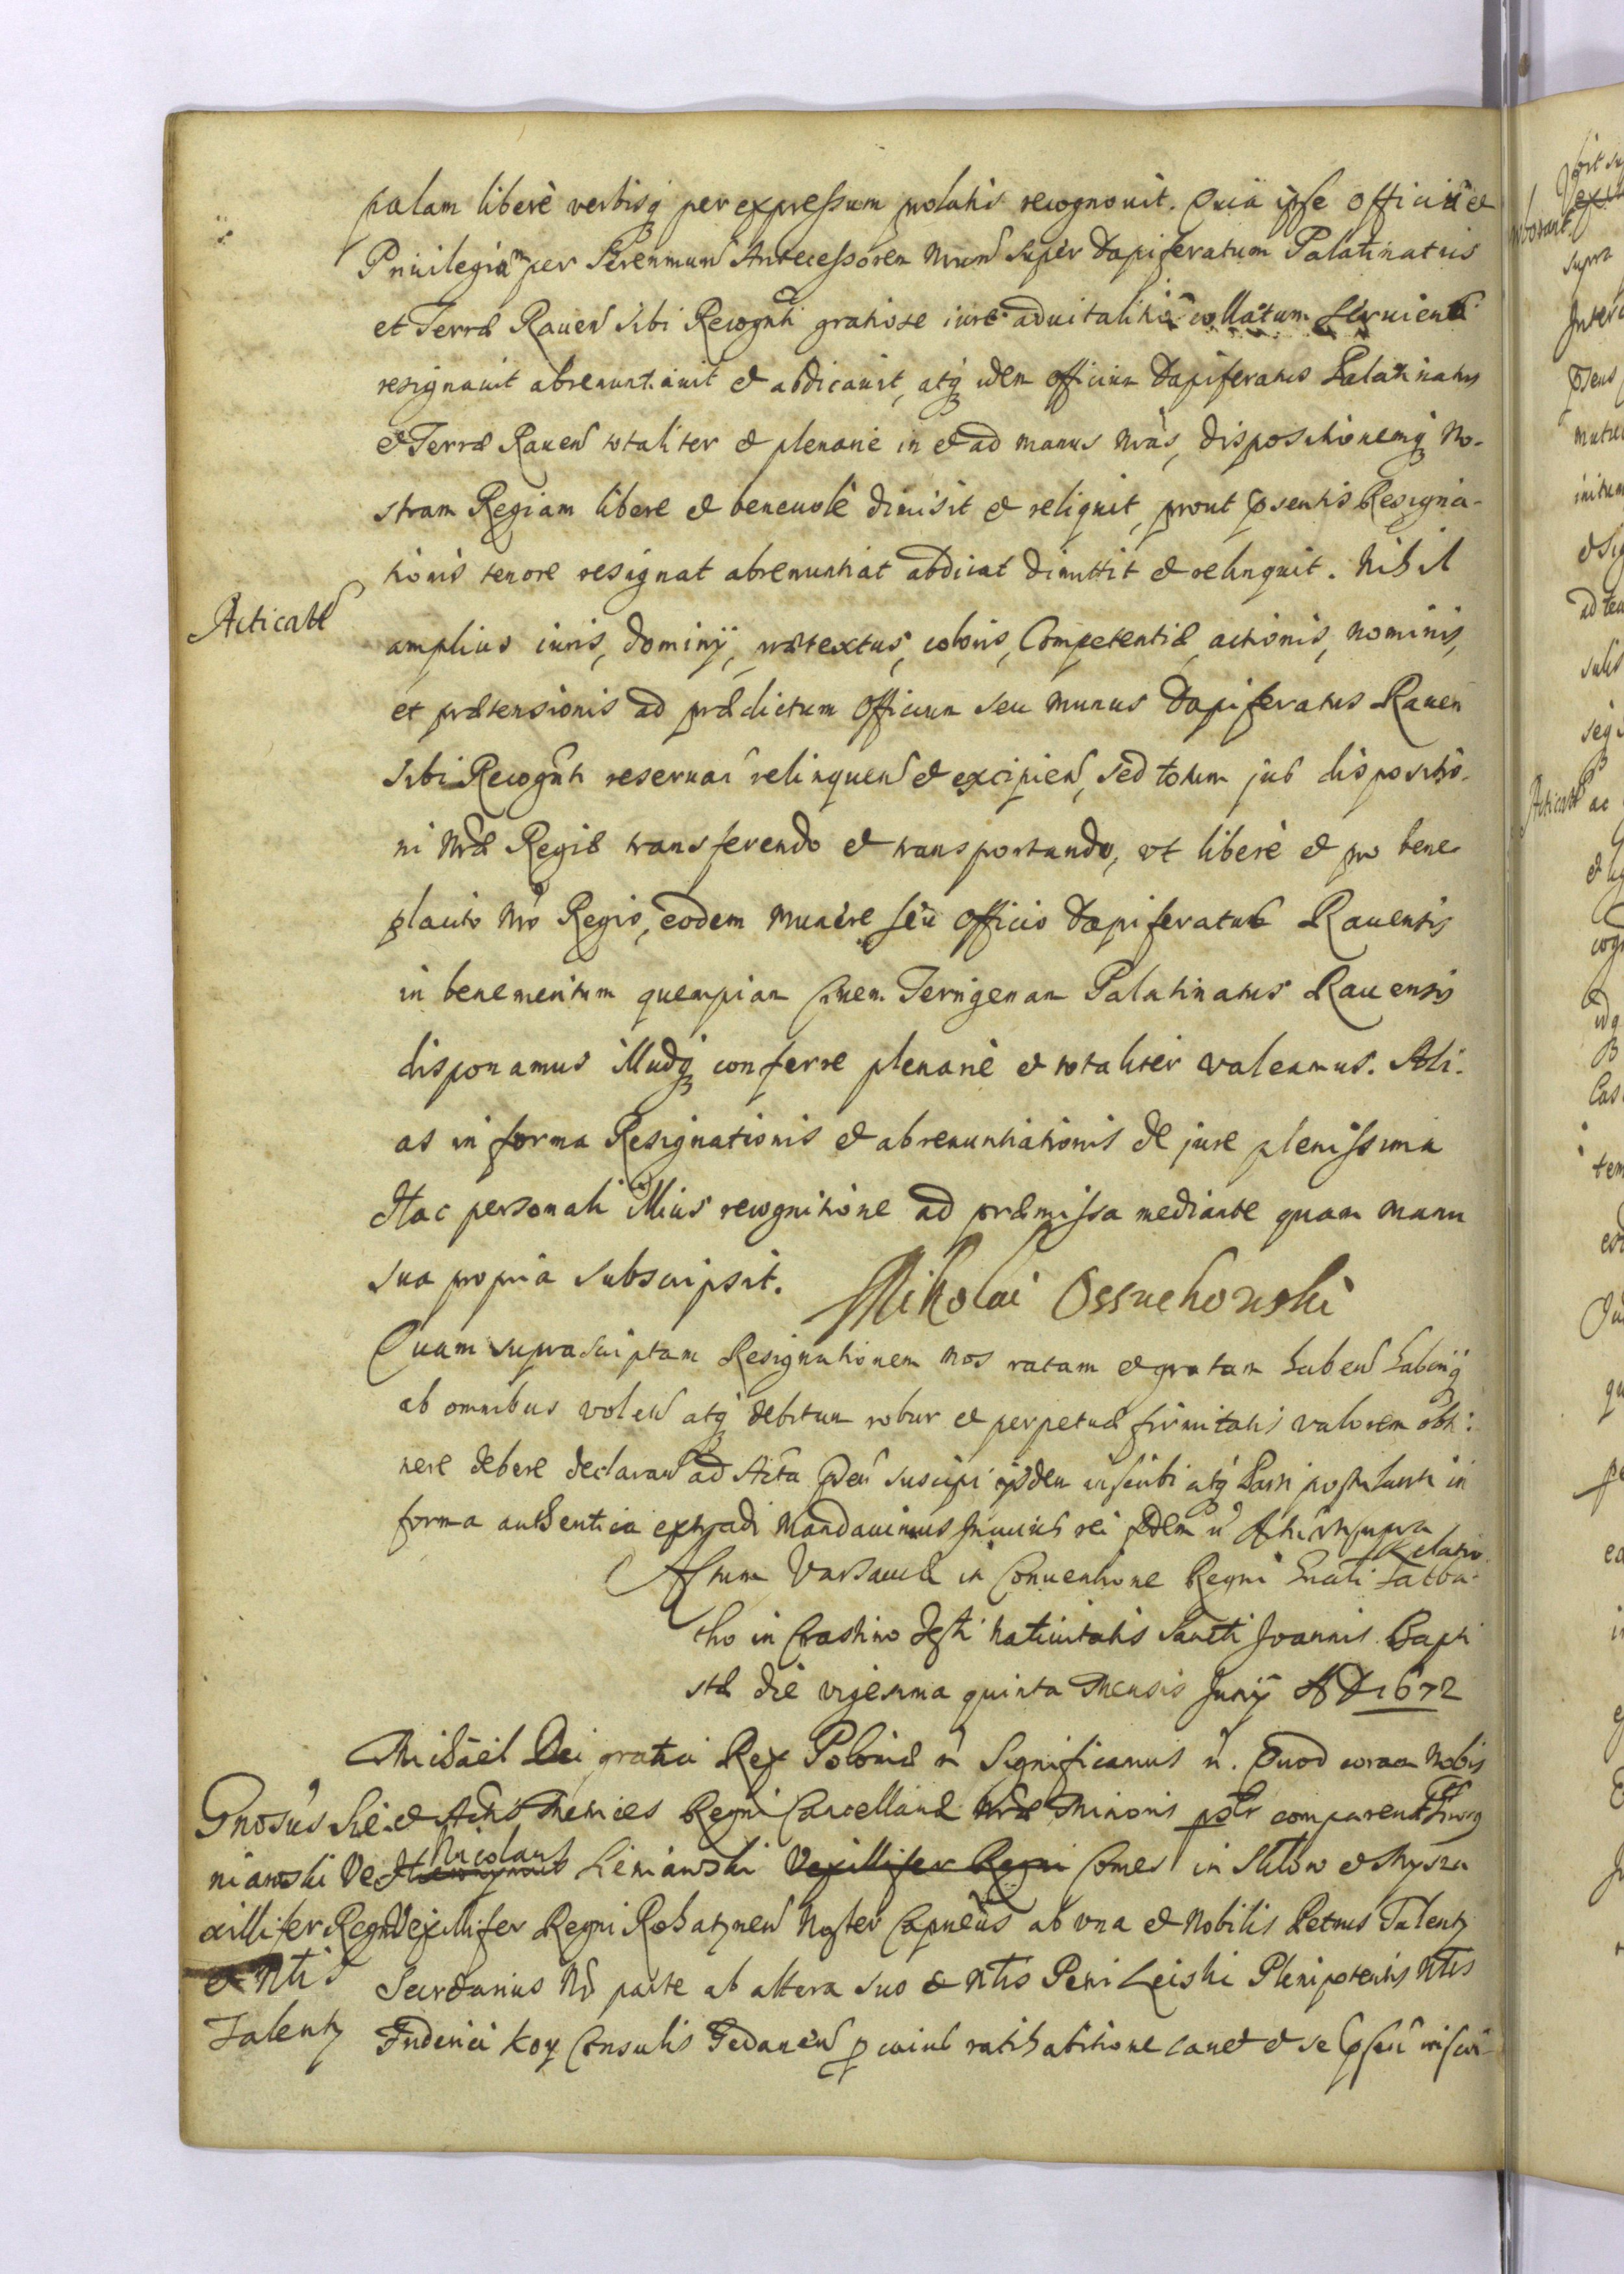 palam liberè verbisq per expressum prolatis recognouit. Quia ipse Officiū et
Priuilegium per Serenmum Antecessorem Nrum super Dapiferatum Palatinatus
et Terræ Rauen sibi Recognti gratiose iure aduitalitiō collatum seruien
resignauit abrenuntiauit et abdicauit, atq idem officium Dapiferatus Palatinatus
et Terræ Rauen totaliter et plenarie in et ad manus Nrās, dispositionemq No-
stram Regiam libere et beneuolè dimisit et reliquit, prout psentis Resigna-
tionis tenore resignat abrenuntiat abdicat dimittit et relinquit. Nihil
Acticatt
amplius iuris, dominÿ, prætextus, coloris, Competentiæ, actionis, nominis,
et prætensionis ad prædictum Officium seu munus Dapiferatus Rauen
sibi Recognti reseruan relinquen et excipien, sed totum jus dispositio-
ni Nræ Regiæ transferendo et transportando, vt liberè et pro bene-
placito Nro Regio, eodem munere seu officio Dapiferatus Rauensis
in benemeritum quempiam Ciuem Terrigenam Palatinatus Rauensis
disponamus illudq conferre plenariè et totaliter valeamus. Ali-
as in forma Resignationis et abrenuntiationis de jure plenissima
Hac personali illius recognitione ad præmissa mediante quam manu
sua propria subscripsit. Mikolai Ossuchowski
Quam suprascriptam Resignationem nos ratam et gratam haben haberiq
ab omnibus volen atq debitum robur et perpetuæ firmitatis valorem obti-
nere debere declaran ad Acta suscipi ijsdem inscribi atq Parti postulanti in
forma authentica extradi mandauimus In cuius rei fidem Act vt supra
Relatio
Actum Varsauiæ in Conuentione Regni Grali Sabba-
tho in Crastino festi Natiuitatis Sancti Joannis Bapti
stæ die vigesima quinta Mensis Junÿ AD 1672
Michaël Dei gratia Rex Poloniæ Significamus Quod coram Nobis
Gnosus Sie-
et Actis Metrices Regni Cancellariæ Nræ Minoris psltr comparen
niawski Ve-
Nicolaus Sieniawski Vexillifer Regni Comes in Sklow et Mysza
xillifer Regni
Vexillifer Regni Rohatynen Noster Capneus ab vna et Nobilis Petrus Talentÿ
et Nlis
Secretarius Nr parte ab altera suo et Nlis Petri Leiski Plenipotentis Nlis
Talentÿ
Friderici Koÿ Consulis Gedanen p cuius ratihabitione cauet et se